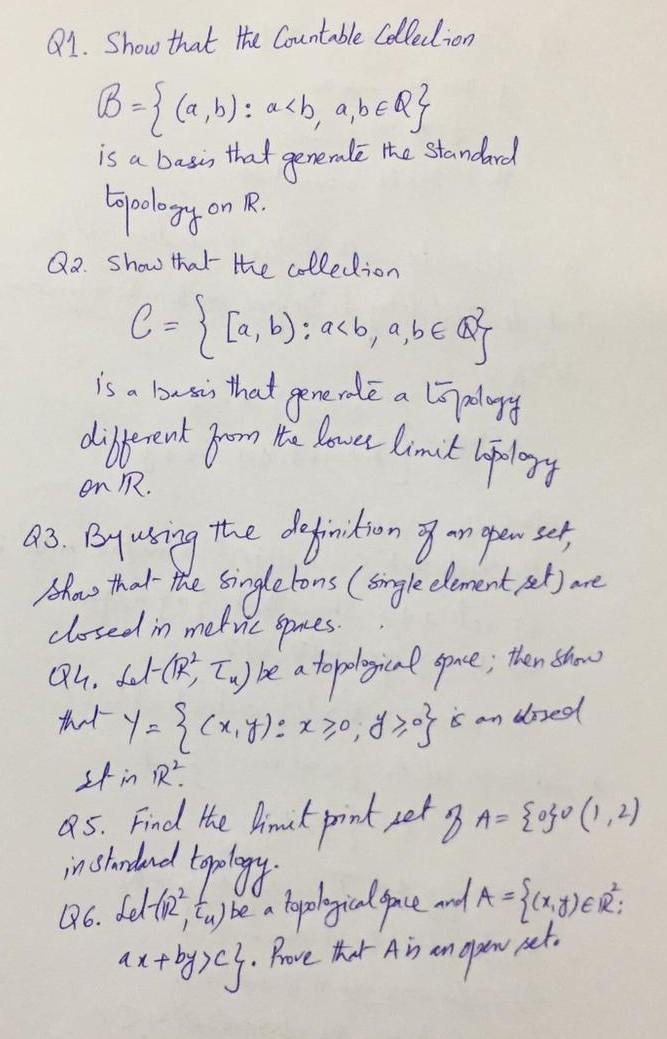 Q1. Show that the Countable Collection
B = { (a,b): a<b, a,b ∈ Q}
is a basis that generate the Standard
topology on R.
Q2. Show that the collection
C = { [a,b): a<b, a,b ∈ Q}
is a basis that generate a topology
different from the lower limit topology
on R.
Q3. By using the definition of an open set,
show that the singletons (single element set) are
closed in metric spaces.
Q4. Let (R², τu) be a topological space; then show
that Y = { (x,y): x ≥ 0, y ≥ 0} is an closed
set in R².
Q5. Find the limit point set of A = {0}∪(1,2)
in standard topology.
Q6. Let (R², τu) be a topological space and A = {(x,y) ∈ R²:
ax+by>c}. Prove that A is an open set.